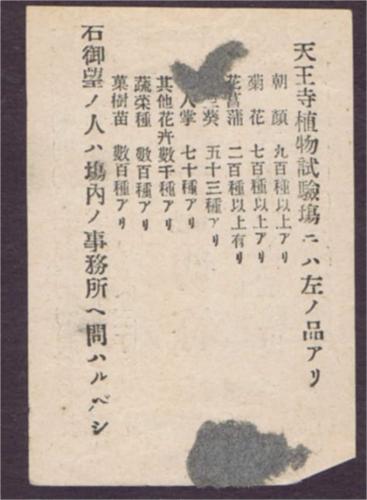 天王寺植物試驗塲ニハ左ノ品アリ
朝顔 九百種以上アリ
菊花 七百種以上アリ
花菖蒲 二百種以上有リ
葵 五十三種アリ
人掌 七十種アリ
其他花卉數千種アリ
蔬菜種 數百種アリ
菓樹苗 數百種アリ
石御望ノ人ハ塲內ノ事務所ヘ問ハルベシ